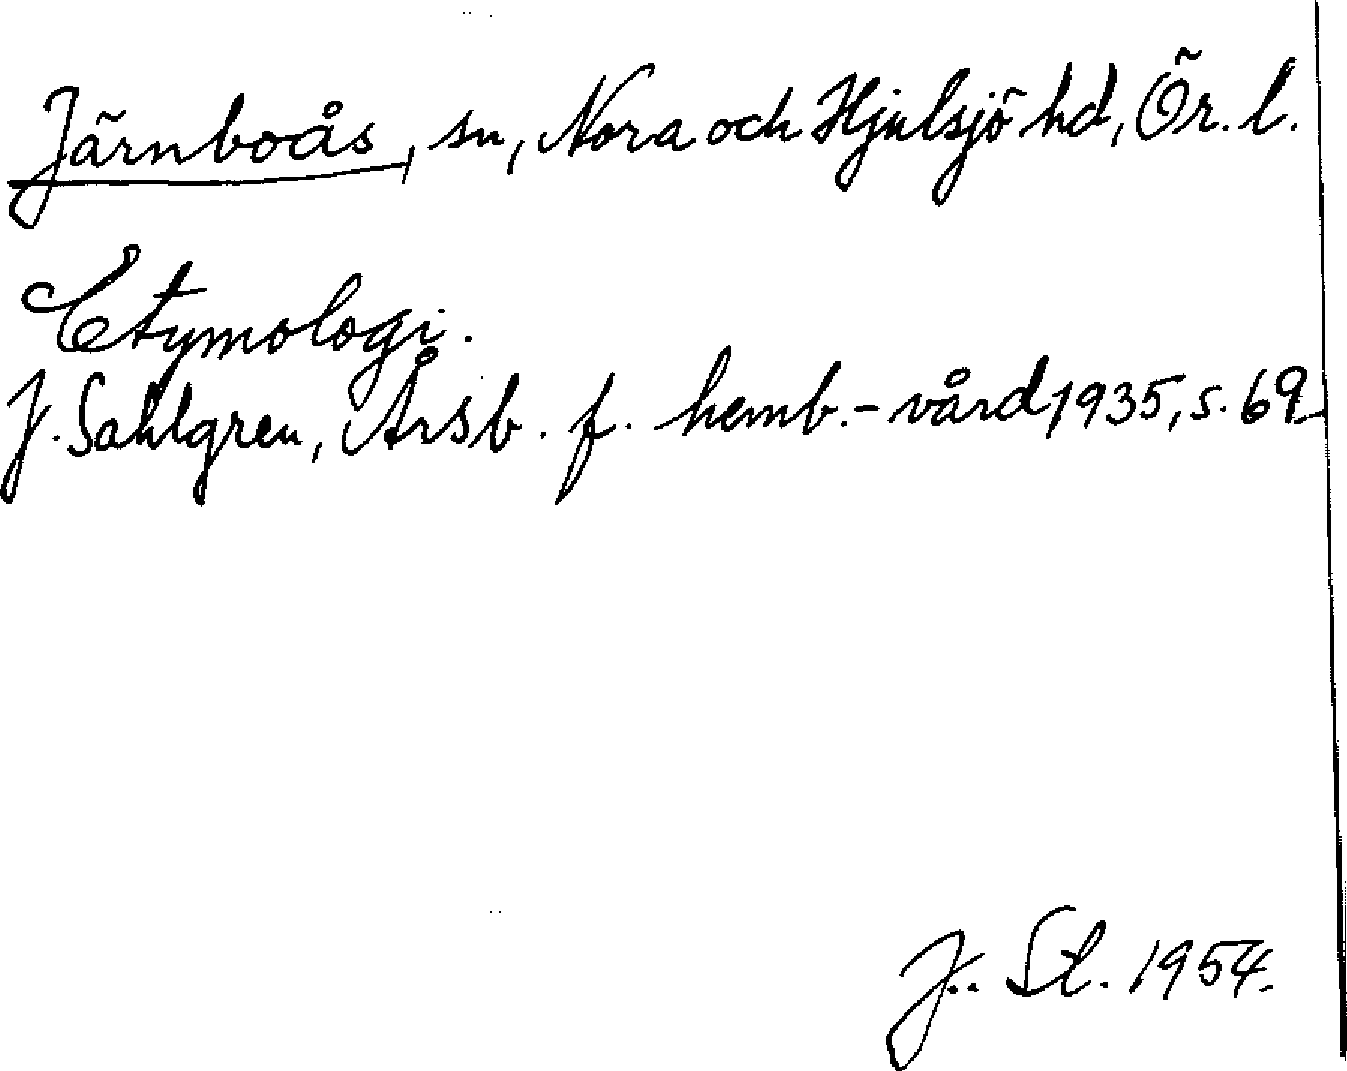 Järnboås, sn, Nora och Hjulsjö hd, Ör. l.
Etymologi.
J. Sahlgren, Årsb. f. hemb.-vård 1935, s. 69.
J. St. 1954.